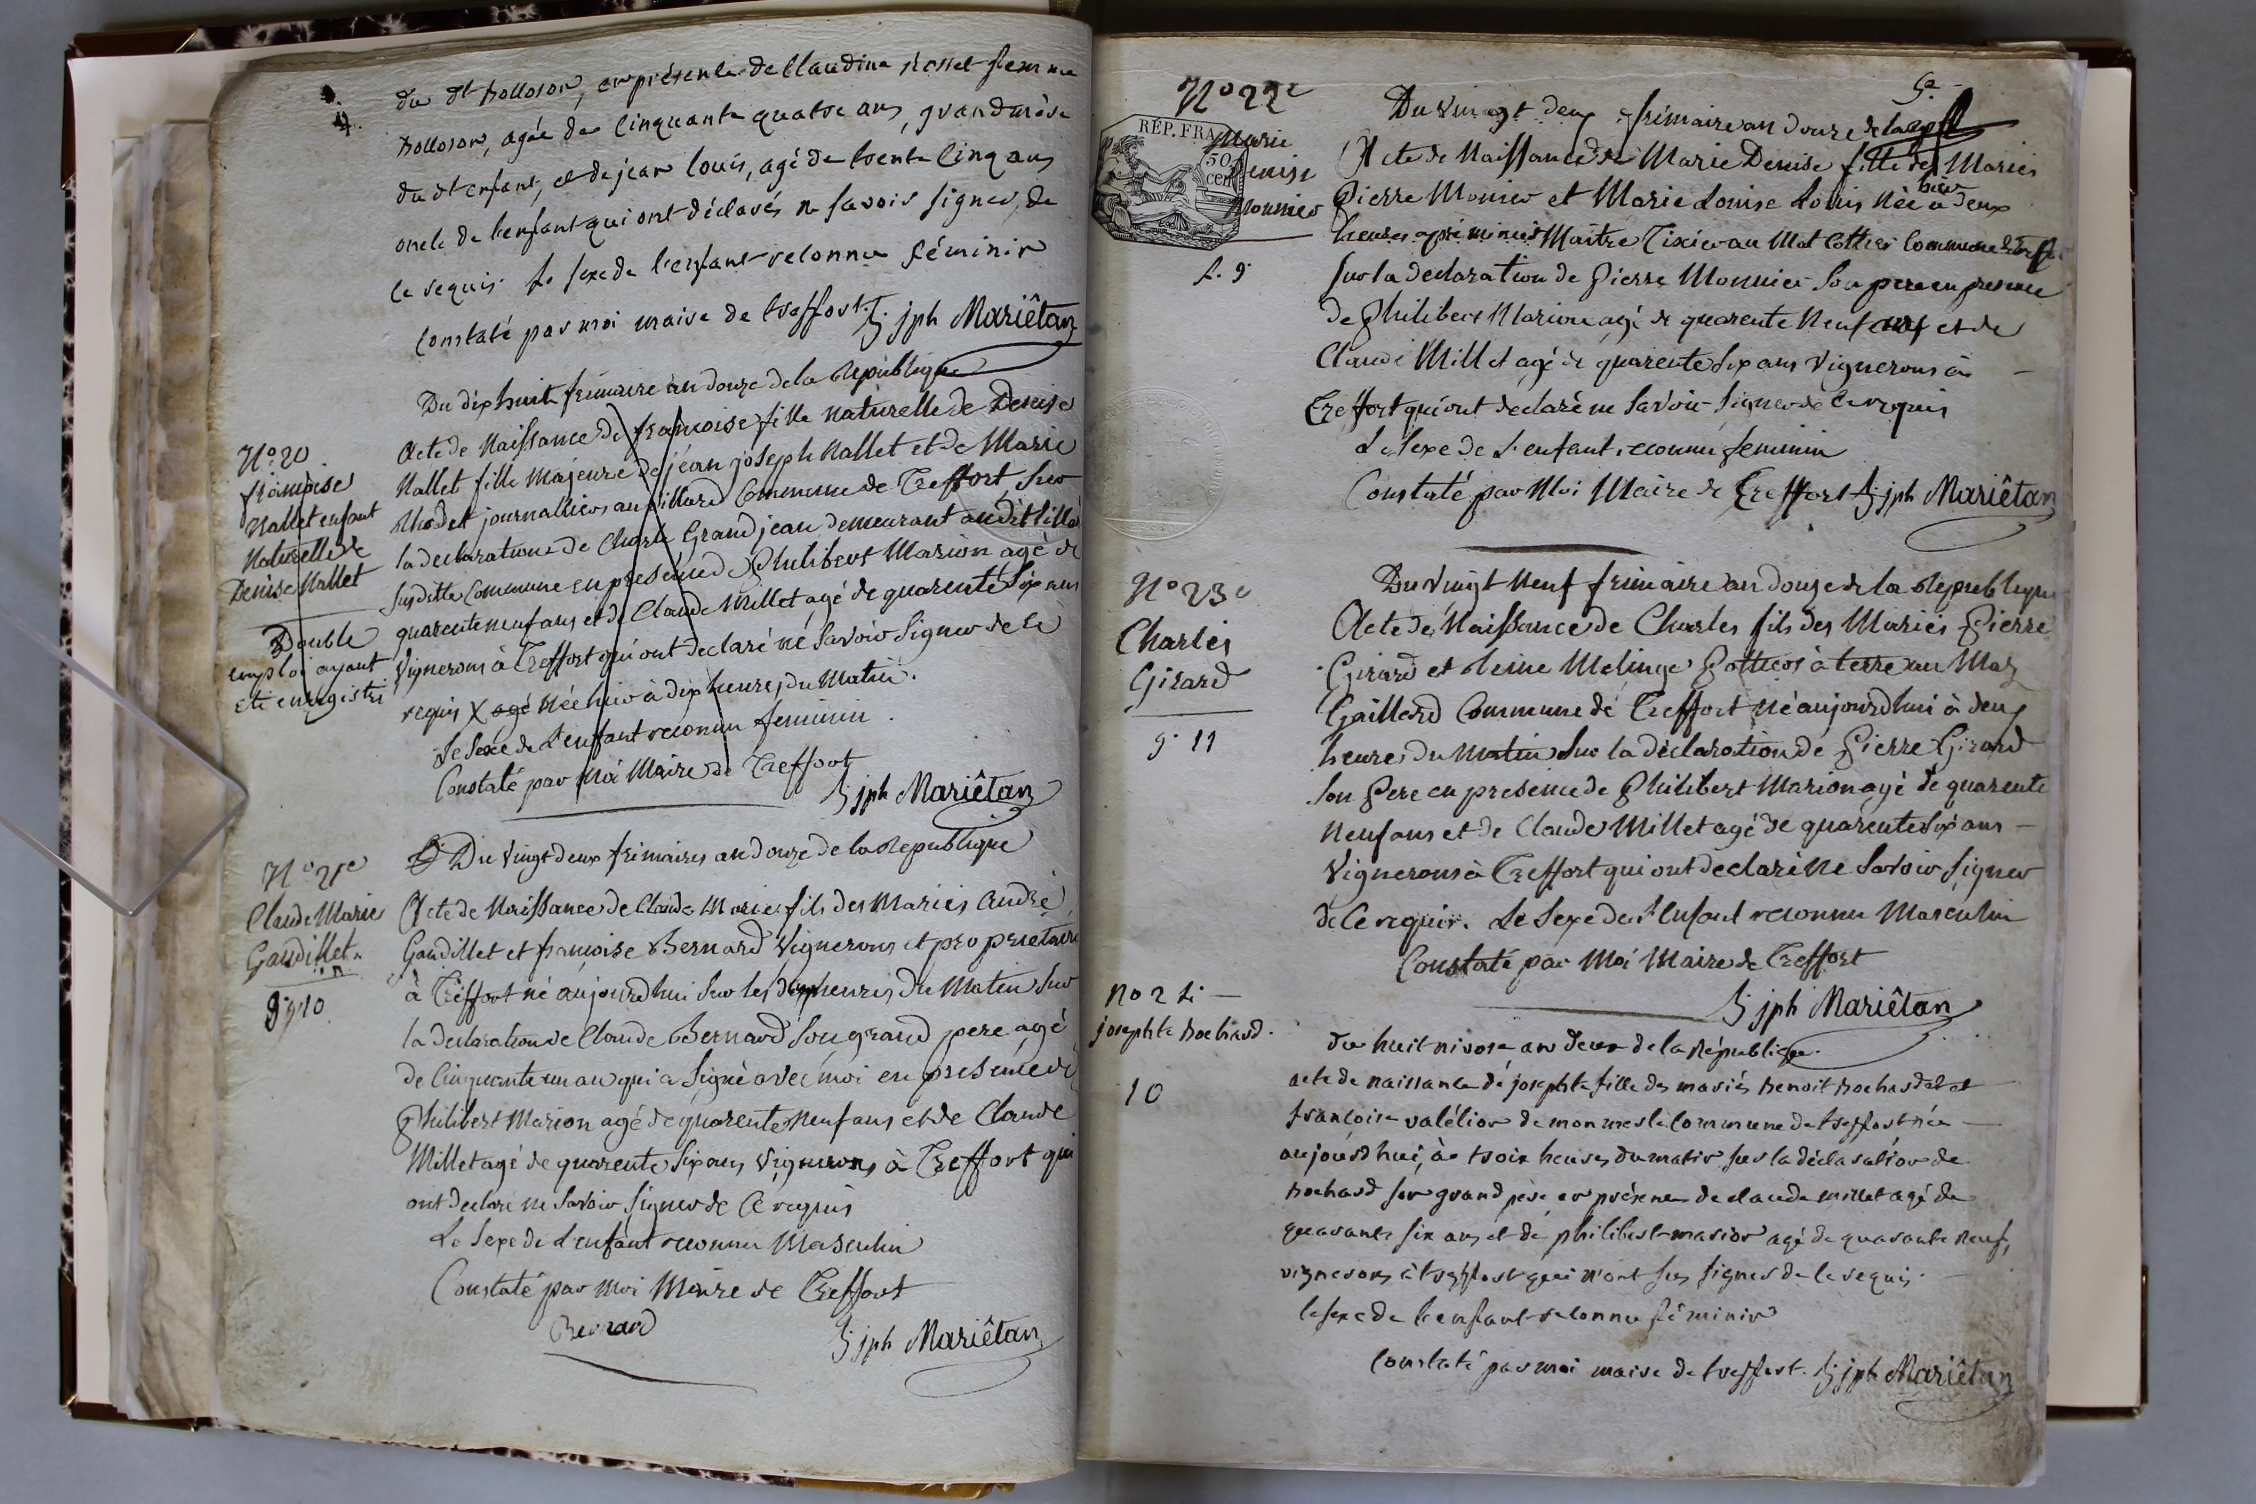 4.
du dt bolloson, en présence de Claudine rosset femme
bolloson, agée de Cinquante quatre ans, grand mère
du dt enfant, et de jean louis, agé de trente Cinq ans
oncle de l'enfant qui ont déclarés ne savoir signer, de
ce requis. le sexe de l'enfant reconnu féminin
Constaté par moi maire de treffort. jph Mariêtan
N° 20
françoise
Nallet enfant
Naturelle de
Denise Nallet
Double
emploi ayant
été enregistré
Du dix huit frimaire an douze de la Republique
Acte de Naissance de françoise fille naturelle de Denise
Nallet fille majeure de jean joseph Nallet et de Marie
Rhodet journalliers au villard Commune de Treffort Sur
la declaration de Charle Grandjean demeurant audit villar
susditte Commune en presence de Philibert Marion agé de
quarente neuf ans et de Claude Millet agé de quarente Six ans
Vignerons à Treffort qui ont declaré ne Savoir Signer de ce
requis X agé Née hier à dix heures du Matin.
Le Sexe de L'enfant reconnu feminin.
Constaté par Moi Maire de Treffort
jph Mariêtan
N° 21e
Claude Marie
Gaudillet.
g. 10
Du Vingt deux frimaires an douze de la Republique
Acte de Naissance de Claude Marie fils des Mariés André
Gaudillet et françoise Bernard Vignerons et proprietaire
à Treffort né aujourdhui Sur les dix heures du Matin Sur
la declaration de Claude Bernard Son grand pere agé
de Cinquante un an qui a Signé avec moi en presence de
Philibert Marion agé de quarente Neuf ans et de Claude
Millet agé de quarente Six ans Vignerons à Treffort qui
ont declaré ne Savoir Signer de Ce requis
Le Sexe de L'enfant reconnu Masculin
Constaté par Moi Maire de Treffort
Bernard jph Mariêtan
5e
N° 22e
RÉP. FRA
50
cen
Marie
Denise
Monnier
f. 9.
Du Vingt deux frimaire an douze de la rep
Acte de Naissance de Marie Denise fille des Mariés
Pierre Monier et Marie Louise Louis Née hier à deux
heures apré minuit Maitre Tixier au Mat Cottier Commune de Treffort
Sur la declaration de Pierre Monnier Son pere en presence
de Philibert Marion agé de quarente Neuf ans et de
Claude Millet agé de quarente Six ans Vignerons à
Treffort qui ont declaré ne Savoir Signer de Ce requis
Le Sexe de L'enfant reconnu feminin
Constaté par Moi Maire de Treffort jph Mariêtan
N° 23e
Charles
Girard
g. 11
Du Vingt Neuf frimaire an douze de la Republique
Acte de Naissance de Charles fils des Mariés Pierre
Girard et Reine Melinge Pottiers à terre au Maz
Gaillard Commune de Treffort né aujourdhui à deux
heures du Matin Sur la déclaration de Pierre Girard
Son Pere en presence de Philibert Marion agé de quarente
Neuf ans et de Claude Millet agé de quarente Six ans
Vignerons à Treffort qui ont declaré Ne Savoir Signer
de Ce requis. Le Sexe de L'Enfant reconnu Masculin
Constaté par Moi Maire de Treffort
jph Mariêtan
no 24
josephte bochard.
10
du huit nivose an douze de la République.
acte de naissance de josephte fille des mariés benoit bochard et
françoise valélion de monmerle Commune de treffort née
aujourd'hui, à trois heures du matin sur la déclaration de
bochard son grand père en présence de claude millet agé de
quarante six ans et de philibert marion agé de quarante neuf,
vignerons à treffort qui n'ont sus signer de ce requis.
le sexe de l'enfant reconnu féminin
Constaté par moi maire de treffort. jph Mariêtan